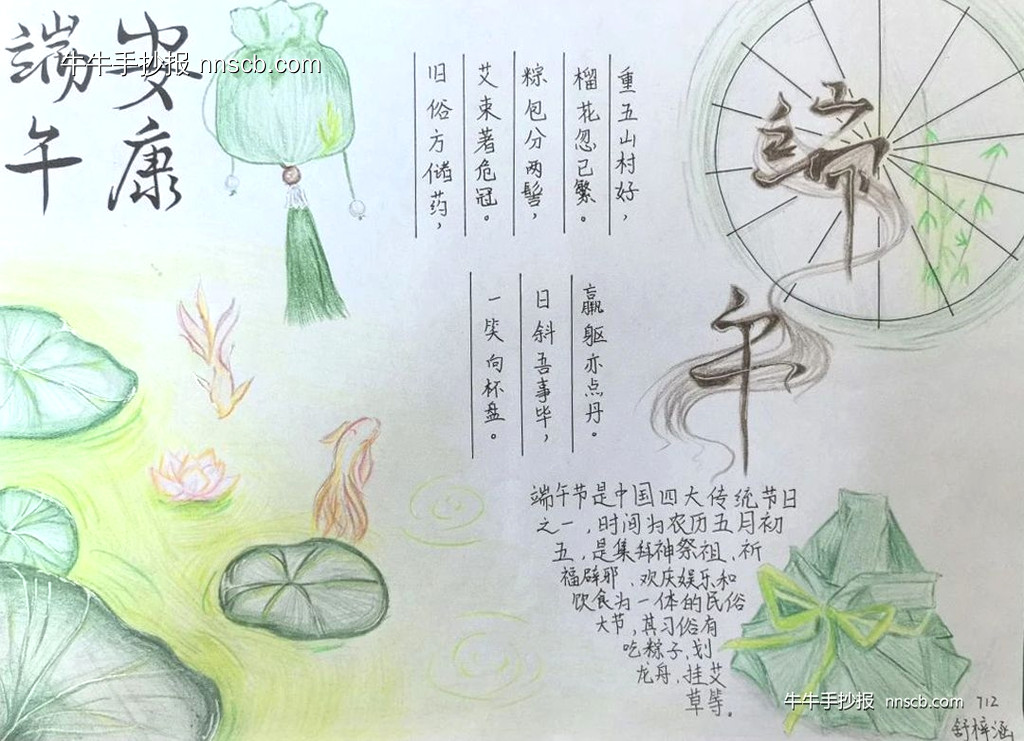 端午
安康
牛牛手抄报 nnscb.com
重五山村好，
榴花忽已繁。
粽包分两髻，
艾束著危冠。
旧俗方储药，
羸躯亦点丹。
日斜吾事毕，
一笑向杯盘。
端午
端午节是中国四大传统节日
之一，时间为农历五月初
五，是集拜神祭祖、祈
福辟邪、欢庆娱乐和
饮食为一体的民俗
大节，其习俗有
吃粽子、划
龙舟、挂艾
草等。
牛牛手抄报 nnscb.com
712
舒梓涵